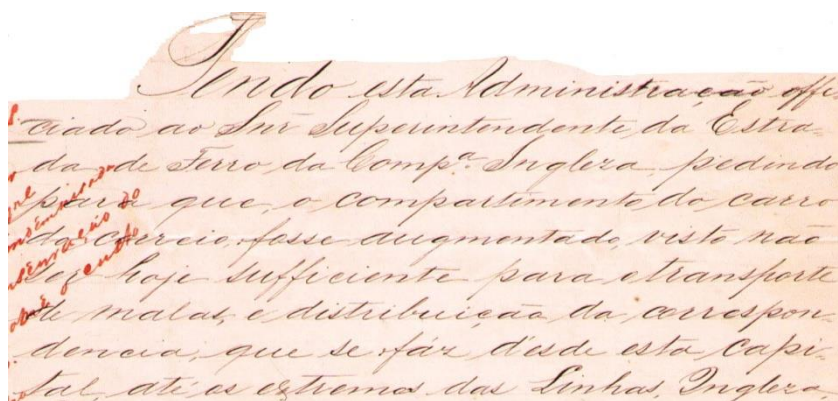 Tendo esta Administração offi
ciado ao Snr Superintendente da Estra-
da de Ferro da Comp.ª Ingleza, pedindo
para que, o compartimento do carro
do correio, fosse augmentado, visto não
ser hoje sufficiente para o transporte
de malas, e distribuição da correspon-
dencia, que se fáz désde esta capi-
tal, até os extremos das Linhas, Ingleza,